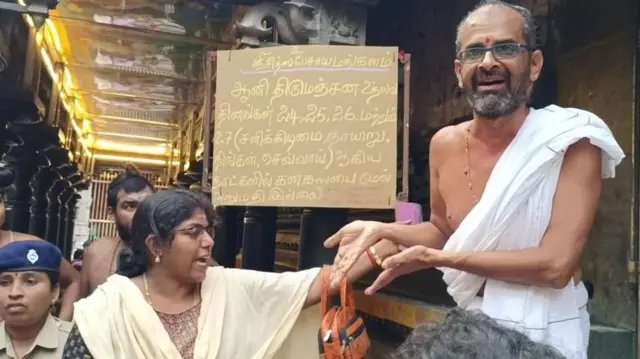 ஆனி திருமஞ்சன உற்சவ
தினங்கள் 24, 25, 26, மற்றும்
27 (சனிக்கிழமை, ஞாயிறு,
திங்கள், செவ்வாய்) ஆகிய
நாட்களில் கனகசபை மேல்
அனுமதி இல்லை